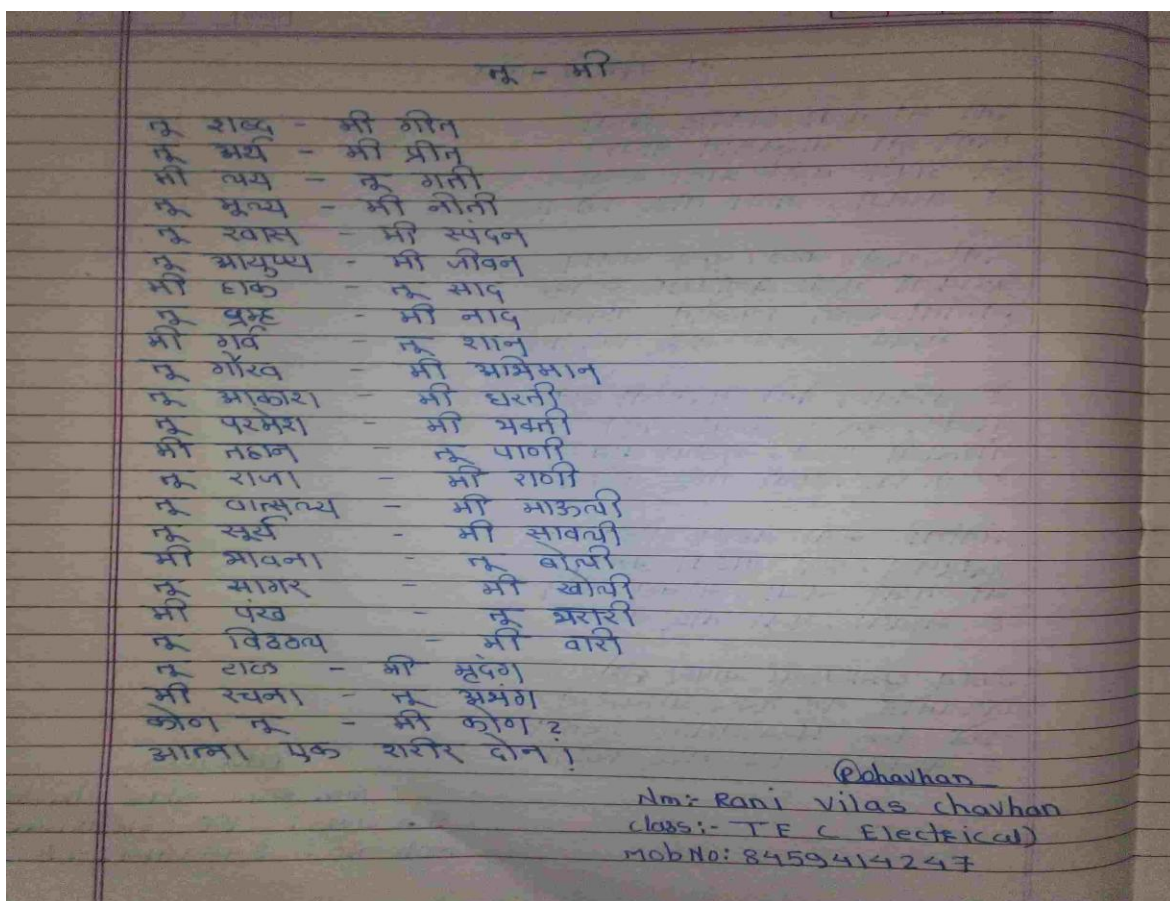 तू - मी
तू शब्द - मी गीत
तू अर्थ - मी प्रीत
मी लय - तू गती
तू मूल्य - मी नीती
तू श्वास - मी स्पंदन
तू आयुष्य - मी जीवन
मी हाक - तू साद
तू ब्रम्ह - मी नाद
मी गर्व - तू शान
तू गौरव - मी अभिमान
तू आकाश - मी धरती
तू परमेश - मी भक्ती
मी तहान - तू पाणी
तू राजा - मी राणी
तू वात्सल्य - मी माऊली
तू सूर्य - मी सावली
मी भावना - तू बोली
तू सागर - मी खोली
मी पंख - तू भरारी
तू विठठल - मी वारी
तू टाळ - मी मृदंग
मी रचना - तू अभंग
कोण तू - मी कोण ?
आत्मा एक शरीर दोन !
@chavhan
Nm:- Rani Vilas chavhan
class:- TE ( Electrical)
Mob No: 8459414247